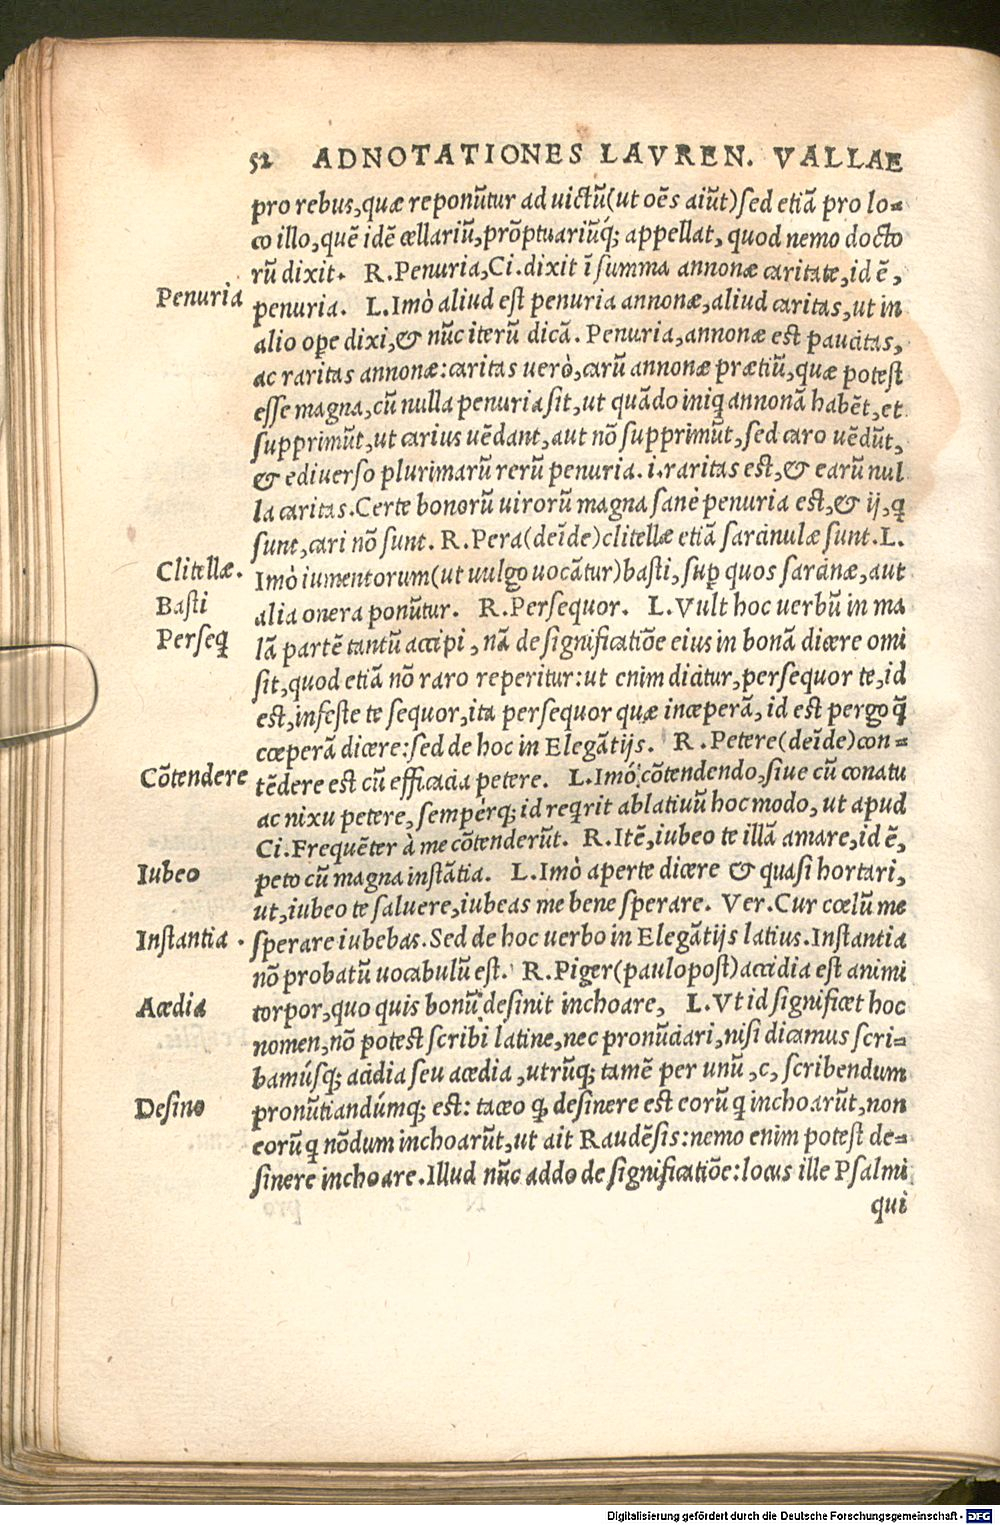 52 ADNOTATIONES LAVREN. VALLAE
pro rebus, quæ reponũtur ad uictũ (ut oẽs aiũt) sed etiã pro lo-
co illo, quẽ idẽ cellariũ, prõptuariũq; appellat, quod nemo docto
rũ dixit. R. Penuria, Ci. dixit ĩ summa annonæ caritate, id ẽ,
Penuria
penuria. L. Imò aliud est penuria annonæ, aliud caritas, ut in
alio oꝑe dixi, & nũc iterũ dicã. Penuria, annonæ est paucitas,
ac raritas annonæ: caritas uerò, carũ annonæ prætiũ, quæ potest
esse magna, cũ nulla penuria sit, ut quãdo iniq̃ annonã habẽt, et
supprimũt, ut carius uẽdant, aut nõ supprimũt, sed caro uẽdũt,
& ediuerso plurimarũ rerũ penuria. i. raritas est, & earũ nul
la caritas. Certe bonorũ uirorũ magna sanè penuria est, & ij, q̃
sunt, cari nõ sunt. R. Pera (deĩde) clitellæ etiã sarcinulæ sunt. L.
Clitellæ.
Imò iumentorum (ut uulgo uocãtur) basti, suꝑ quos sarcinæ, aut
Basti
alia onera ponũtur. R. Persequor. L. Vult hoc uerbũ in ma
Perseq̃
lã partẽ tantũ accipi, nã de significatiõe eius in bonã dicere omi
sit, quod etiã nõ raro reperitur: ut enim dicitur, persequor te, id
est, infeste te sequor, ita persequor quæ inceperã, id est pergo q̃
cœperã dicere: sed de hoc in Elegãtijs. R. Petere (deĩde) con-
Cõtendere
tẽdere est cũ efficacia petere. L. Imó cõtendendo, siue cũ conatu
ac nixu petere, sempérq; id reqrit ablatiuũ hoc modo, ut apud
Ci. Frequẽter à me cõtenderũt. R. Itẽ, iubeo te illã amare, id ẽ,
Iubeo
peto cũ magna instãtia. L. Imò aperte dicere & quasi hortari,
ut, iubeo te saluere, iubeas me bene sperare. Ver. Cur cœlũ me
Instantia.
sperare iubebas. Sed de hoc uerbo in Elegãtijs latius. Instantia
nõ probatũ uocabulũ est. R. Piger (paulopost) accidia est animi
Acedia
torpor, quo quis bonũ desinit inchoare, L. Vt id significet hoc
nomen, nõ potest scribi latine, nec pronũciari, nisi dicamus scri-
bamúsq; acidia seu acedia, utrũq; tamẽ per unũ, c, scribendum
Desino
pronũtiandúmq; est: taceo q̃ desinere est eorũ q̃ inchoarũt, non
eorũ q̃ nõdum inchoarũt, ut ait Raudẽsis: nemo enim potest de-
sinere inchoare. Illud nũc addo de significatiõe: locus ille Psalmi
qui
Digitalisierung gefördert durch die Deutsche Forschungsgemeinschaft - DFG